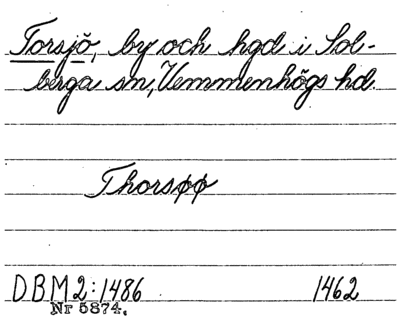 Torsjö, by och hgd i Sol-
berga sn, Vemmenhögs hd.
Thorsøø
DBM2:1486 1462
Nr 5874.